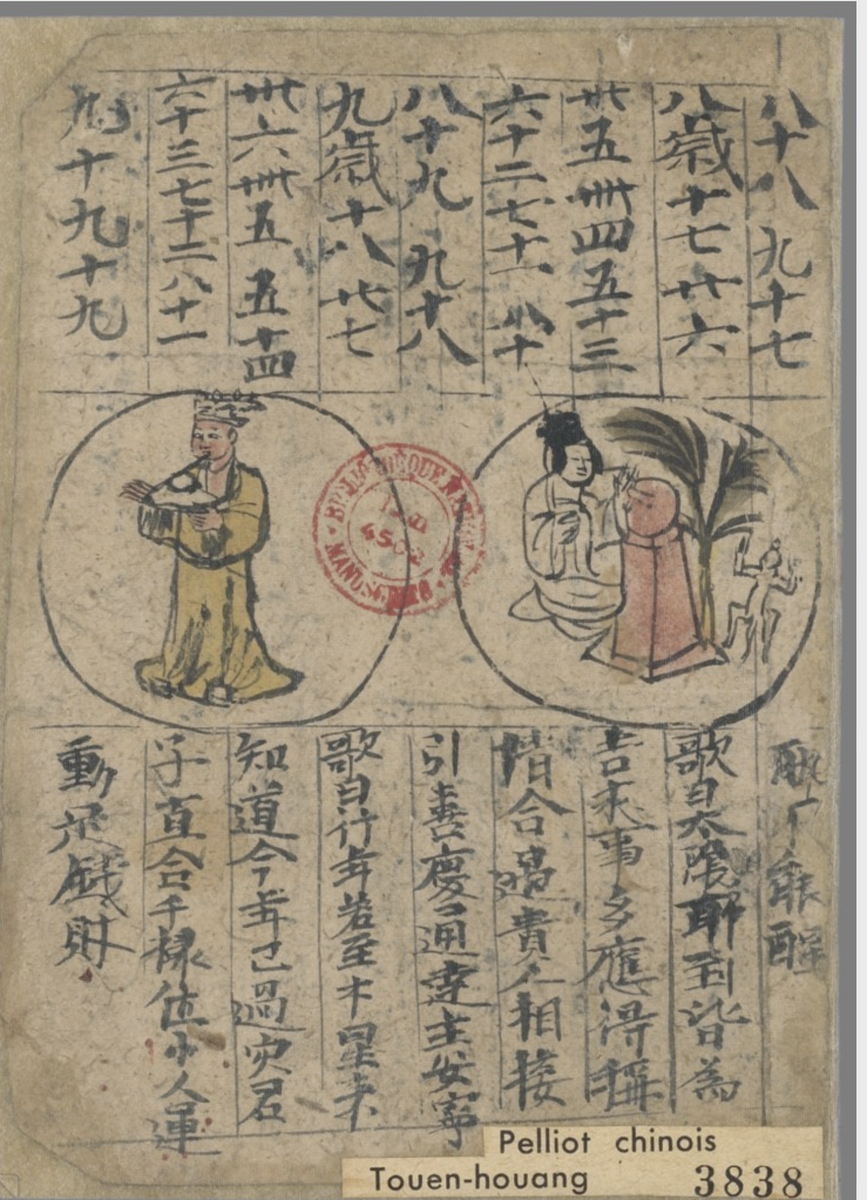 八十八 九十七
八歲十七廿六
卅五卌四五十三
六十二七十一 八十
八十九 九十八
九歲十八廿七
卅六卌五 五十四
六十三七十二八十一
九十九十九
醉醒
歌曰太陰那到皆為
吉求事多應得稱
皆合遇貴人相接
引喜慶通達主安寧
歌曰行年若至木星来
知道今年已過灾君
子直合千禄位小人運
動足錢財
BIBLIOTHEQUE
MANUSCRITS
Pelliot chinois
Touen-houang 3838